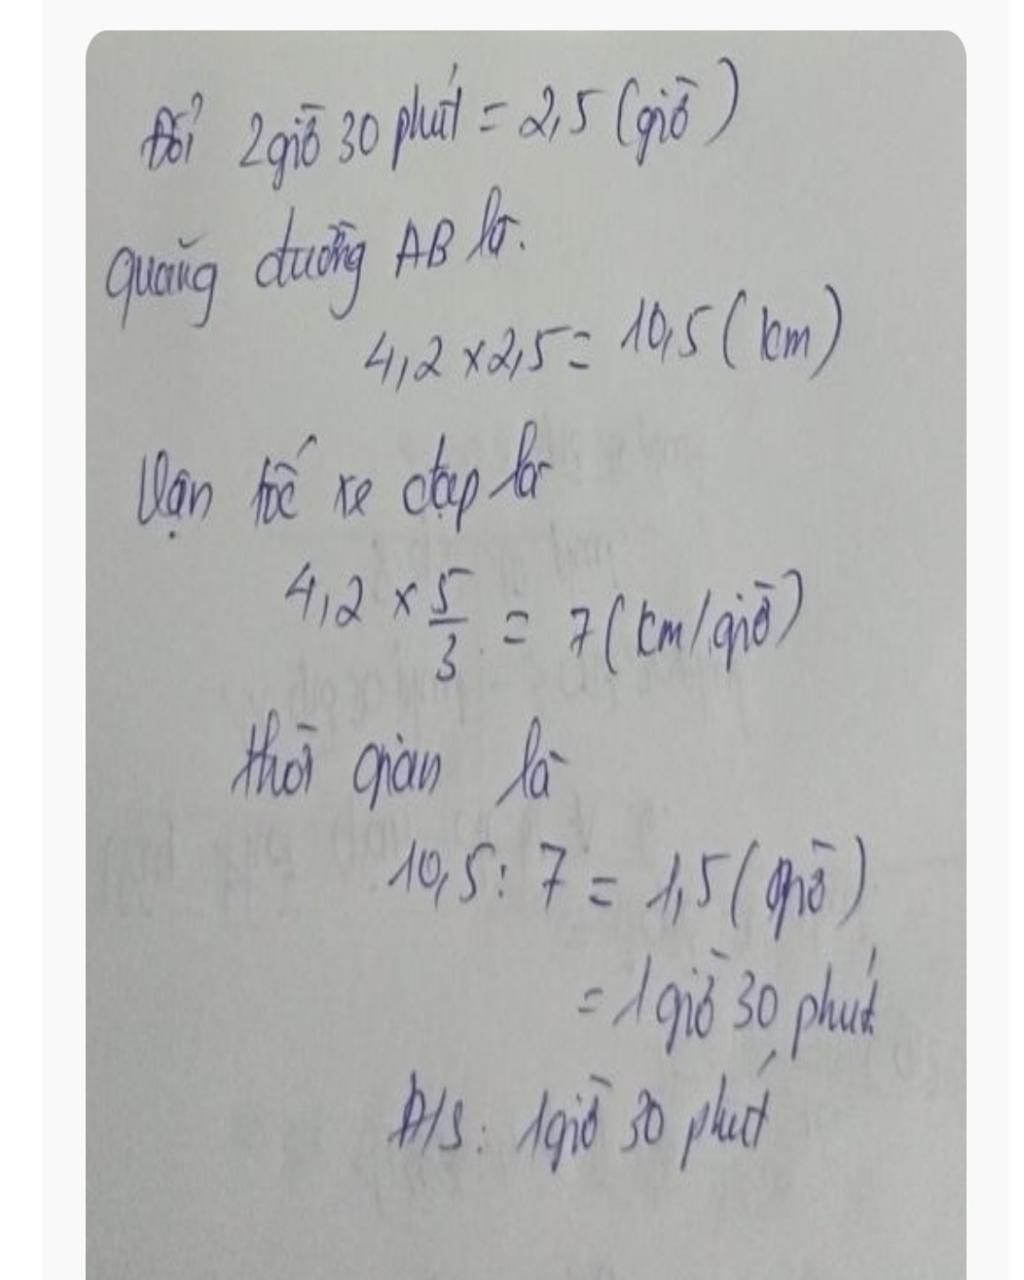 Đổi 2 giờ 30 phút = 2,5 (giờ)
Quãng đường AB là.
4,2 x 2,5 = 10,5 (km)
Vận tốc xe đạp là
4,2 x 5/3 = 7 (km/giờ)
thời gian là
10,5 : 7 = 1,5 (giờ)
= 1 giờ 30 phút
Đ/S: 1 giờ 30 phút